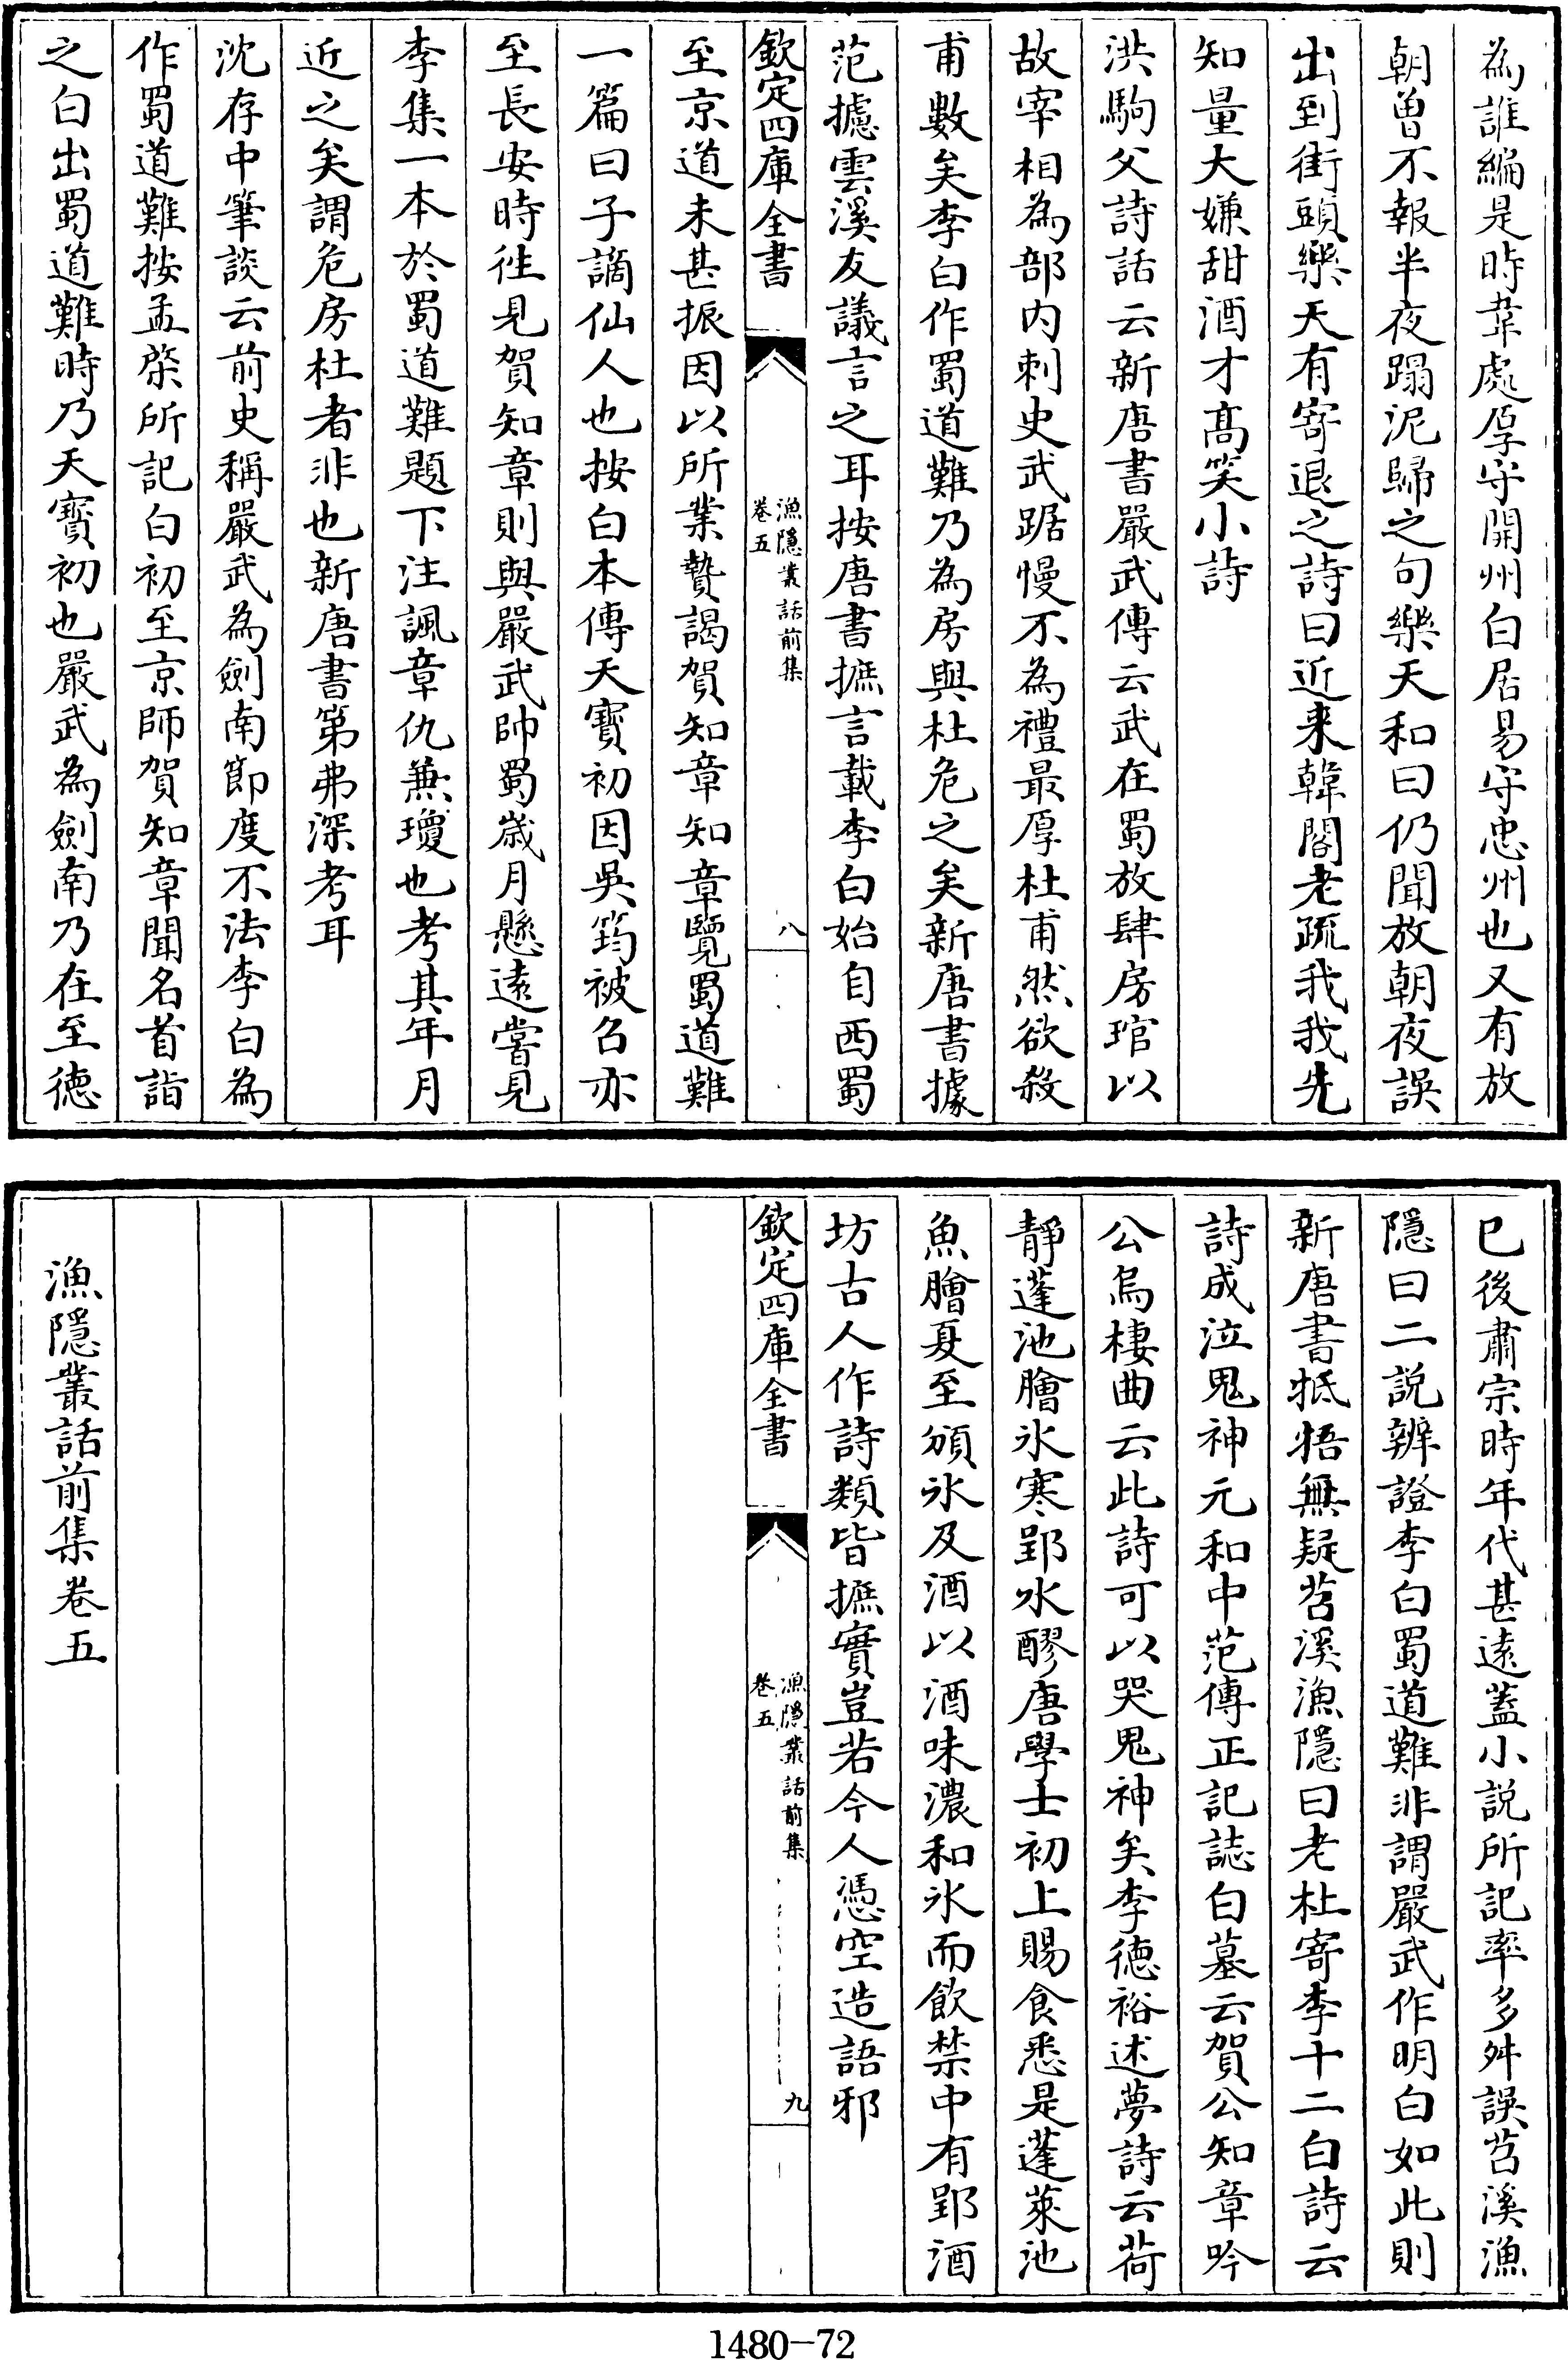 為誰編是時韋處厚守開州白居易守忠州也又有放
朝曽不報半夜蹋泥歸之句樂天和曰仍聞放朝夜誤
出到街頭樂天有寄退之詩曰近来韓閣老疏我我先
知量大嫌甜酒才髙笑小詩
洪駒父詩話云新唐書嚴武傳云武在蜀放肆房琯以
故宰相為部内刺史武踞慢不為禮最厚杜甫然欲殺
甫數矣李白作蜀道難乃為房與杜危之矣新唐書據
范攄雲溪友議言之耳按唐書摭言載李白始自西蜀
欽定四庫全書
漁隱叢話前集
卷五
八
至京道未甚振因以所業贄謁賀知章知章覽蜀道難
一篇曰子謫仙人也按白本傳天寳初因吳筠被召亦
至長安時徃見賀知章則與嚴武帥蜀嵗月懸遠嘗見
李集一本於蜀道難題下注諷章仇兼瓊也考其年月
近之矣謂危房杜者非也新唐書第弗深考耳
沈存中筆談云前史稱嚴武為劍南節度不法李白為
作蜀道難按孟棨所記白初至京師賀知章聞名首詣
之白出蜀道難時乃天寳初也嚴武為劍南乃在至徳
已後肅宗時年代甚逺蓋小説所記率多舛誤苕溪漁
隱曰二説辨證李白蜀道難非謂嚴武作明白如此則
新唐書牴牾無疑苕溪漁隱曰老杜寄李十二白詩云
詩成泣鬼神元和中范傳正記誌白墓云賀公知章吟
公烏棲曲云此詩可以哭鬼神矣李徳裕述夢詩云荷
靜蓬池膾氷寒郢水醪唐學士初上賜食悉是蓬萊池
魚膾夏至頒氷及酒以酒味濃和氷而飲禁中有郢酒
坊古人作詩類皆摭實豈若今人憑空造語邪
欽定四庫全書
漁隱叢話前集
卷五
九
漁隱叢話前集卷五
1480-72